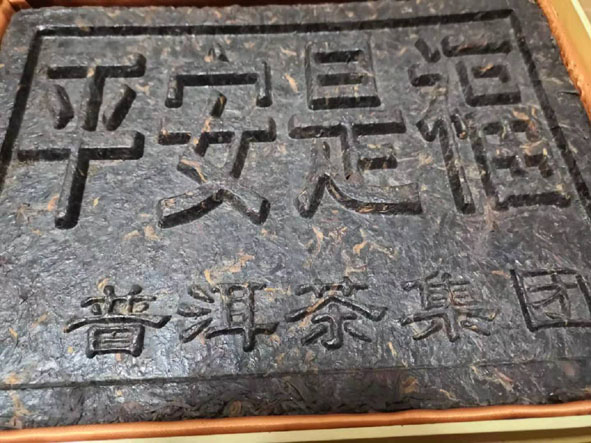 平安是福
普洱茶集团